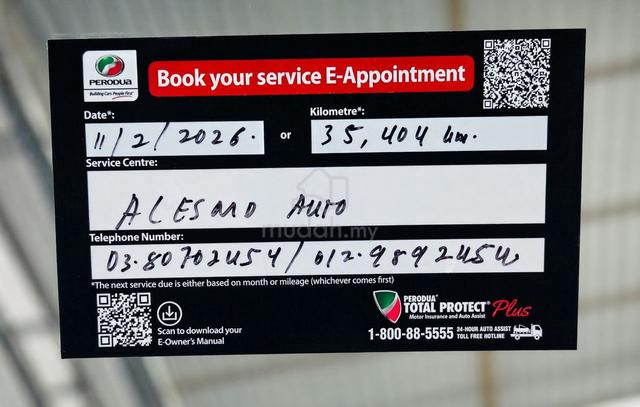 PERODUA
Building Cars People First
Book your service E-Appointment
Date*:
11/2/2026.
or
Kilometre*:
35,404 km.
Service Centre:
ALESMO AUTO
mudah.my
Telephone Number:
03.80702454 / 012.9892454
*The next service due is either based on month or mileage (whichever comes first)
Scan to download your
E-Owner's Manual
PERODUA
TOTAL PROTECT Plus
Motor Insurance and Auto Assist
1-800-88-5555
24-HOUR AUTO ASSIST
TOLL FREE HOTLINE